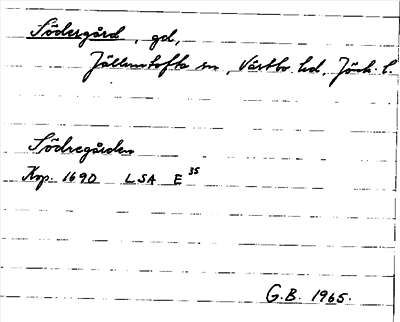 Södergård, gd,
Jälluntofta sn, Västbo hd, Jönk. l.
Södregården
Kop. 1690 LSA E 35
G.B. 1965.